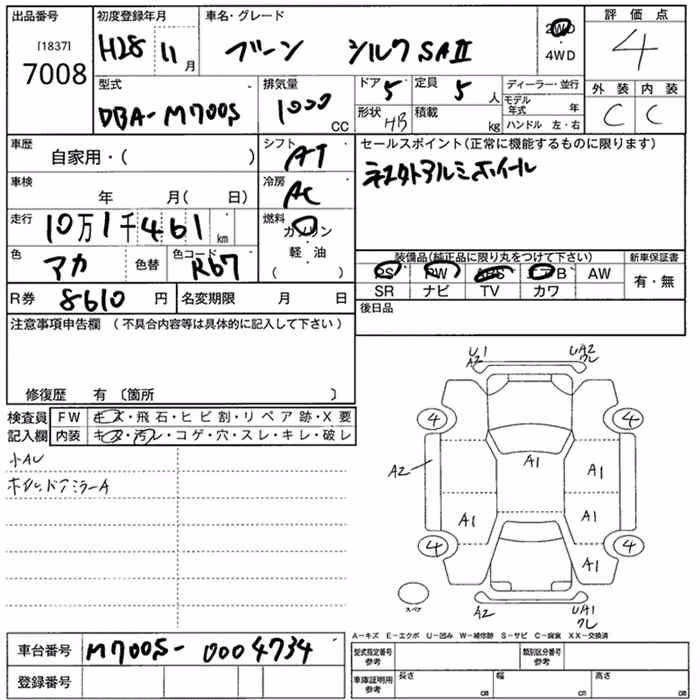 出品番号 初度登録年月 車名・グレード 評価点
[1837]
7008
H28 11月 ブーン シルク SAⅡ 2WD・4WD 4
型式 排気量 ドア 5 定員 5人 ディーラー・並行 外装 内装
DBA-M700S 1000 CC 形状 HB 積載 kg モデル年式 年 C C
ハンドル 左・右
車歴 シフト セールスポイント(正常に機能するものに限ります)
自家用・( ) AT
車検 冷房
年 月( 日) AC
走行 燃料
10万1千461km ガソリン
軽・油
( )
色 色替 色コード 装備品(純正品に限り丸をつけて下さい) 新車保証書
アカ R67 PS PW ABS エアB AW 有・無
SR ナビ TV カワ
R券 8610円 名変期限 月 日 後日品
注意事項申告欄 (不具合内容等は具体的に記入して下さい)
修復歴 有 〔箇所 〕
検査員 FW キズ・飛石・ヒビ割・リペア跡・X要
記入欄 内装 キズ・汚レ・コゲ・穴・スレ・キレ・破レ
小AU
ドアミラーA
U1 A2 UA2 クレ
4 4
A1
A2 A1
A1 A1
4 4
A1
スペア A2 UA1 クレ
A-キズ E-エクボ U-凹み W-補修跡 S-サビ C-腐食 XX-交換済
車台番号 M700S-0004734 型式指定番号 参考 類別区分番号 参考
登録番号 車庫証明用 参考 長さ cm 幅 cm 高さ cm